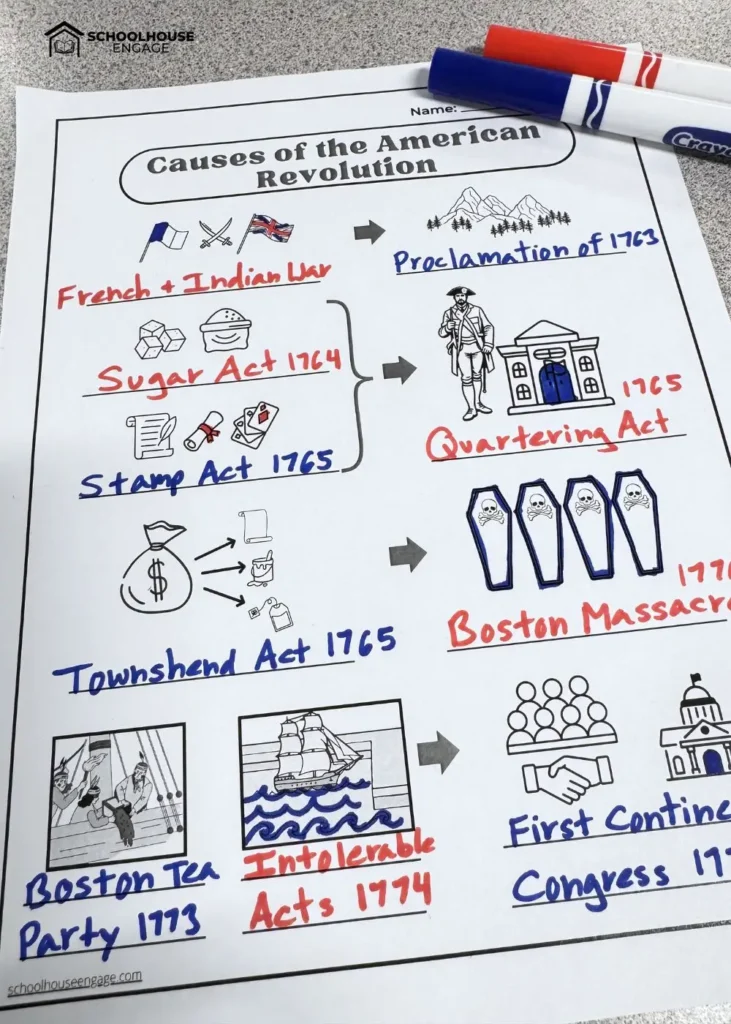 SCHOOLHOUSE
ENGAGE
Name:
Causes of the American
Revolution
French + Indian War
Proclamation of 1763
Sugar Act 1764
Stamp Act 1765
1765
Quartering Act
$
Townshend Act 1765
Boston Massacr
Boston Tea
Party 1773
Intolerable
Acts 1774
First Contine
Congress 17
schoolhouseengage.com